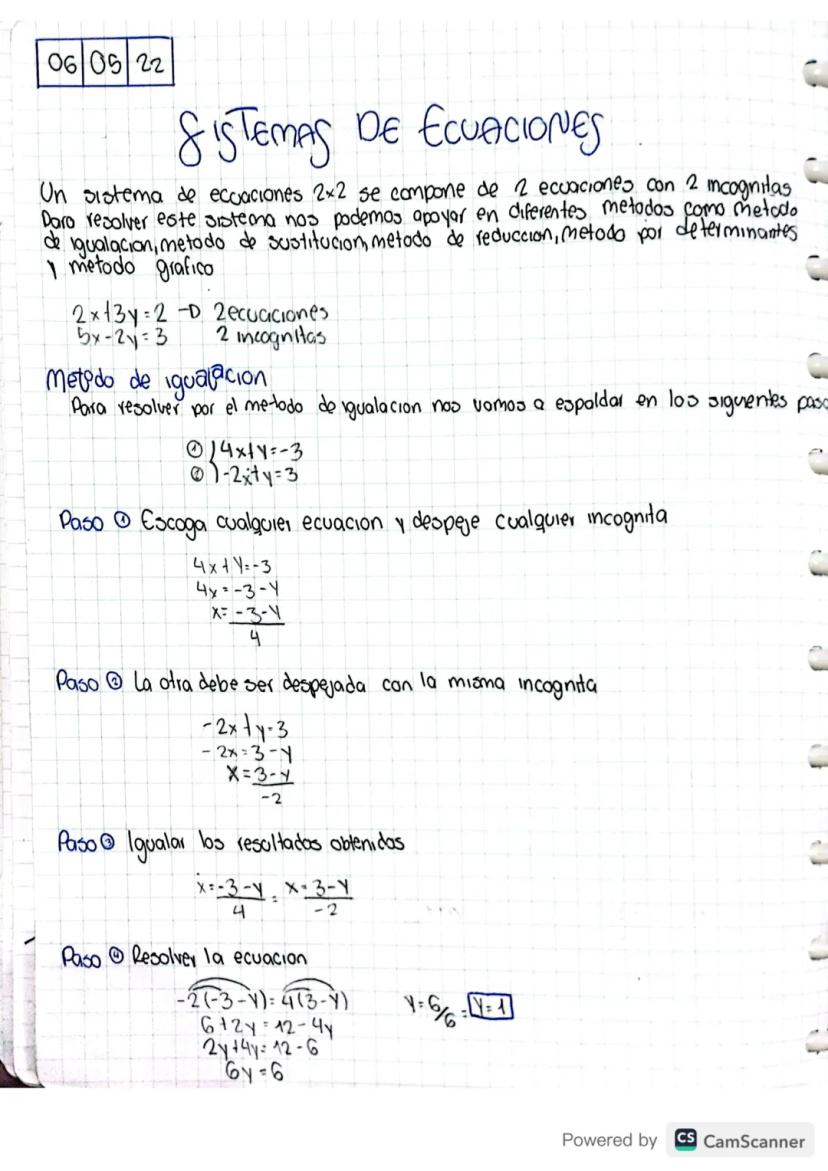 06 05 22
SISTEMAS DE ECUACIONES
Un sistema de ecuaciones 2x2 se compone de 2 ecuaciones con 2 incognitas
Para resolver este sistema nos podemos apoyar en diferentes metodos como metodo
de igualacion, metodo de sustitucion, metodo de reduccion, metodo por determinantes
y metodo grafico
2x+3y=2 → 2ecuaciones
5x-2y=3 2 incognitas
Metodo de igualacion
Para resolver por el metodo de igualacion nos vamos a espaldar en los siguientes paso
① 4x+y=-3
② -2x+y=3
Paso ① Escoga cualquier ecuacion y despeje cualquier incognita
4x+y=-3
4x=-3-y
x=-3-y
4
Paso ② La otra debe ser despejada con la misma incognita
-2x+y=3
-2x=3-y
x=3-y
-2
Paso ③ Igualar los resultados obtenidos
x=-3-y = x=3-y
4 -2
Paso ④ Resolver la ecuacion
-2(-3-y)=4(3-y) y=6/6=y=1
6+2y=12-4y
2y+4y=12-6
6y=6
Powered by CS CamScanner